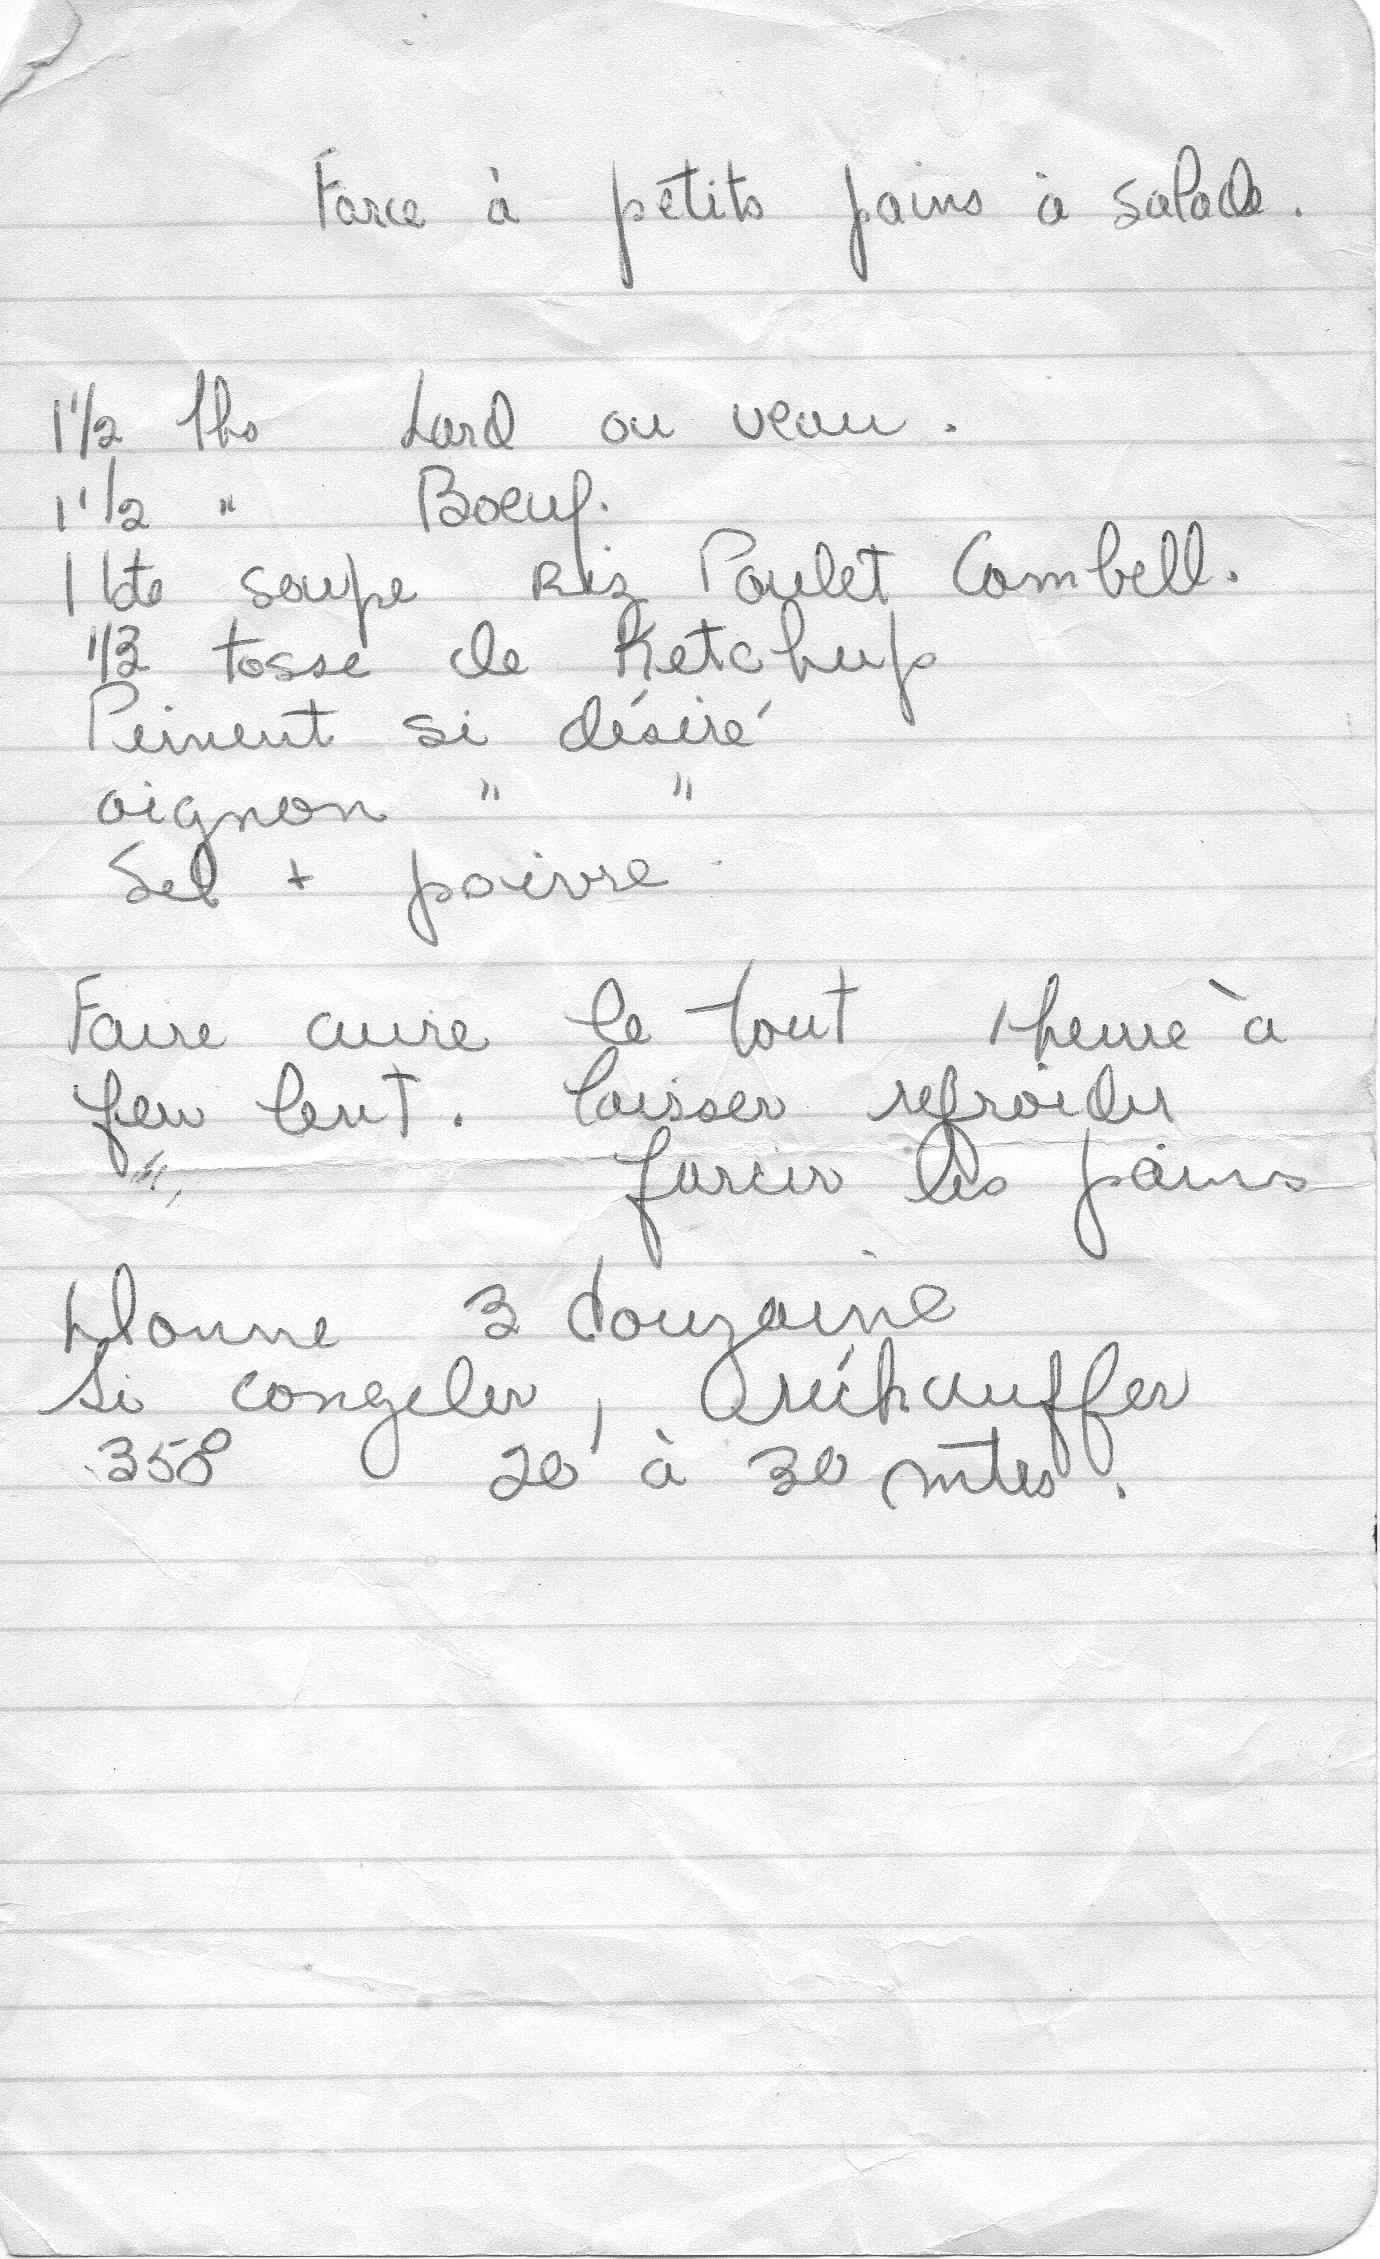 Farce à petits pains à salade.
1 1/2 lbs Lard ou veau.
1 1/2 " Boeuf.
1 bte soupe Riz Poulet Cambell.
1/3 tasse de Ketchup
Piment si désiré
oignon " "
Sel + poivre
Faire cuire le tout 1 heure à
feu lent. laisser refroidir
farcir les pains
Donne 3 douzaine
Si congeler, réchauffer
350 20 à 30 mtes.